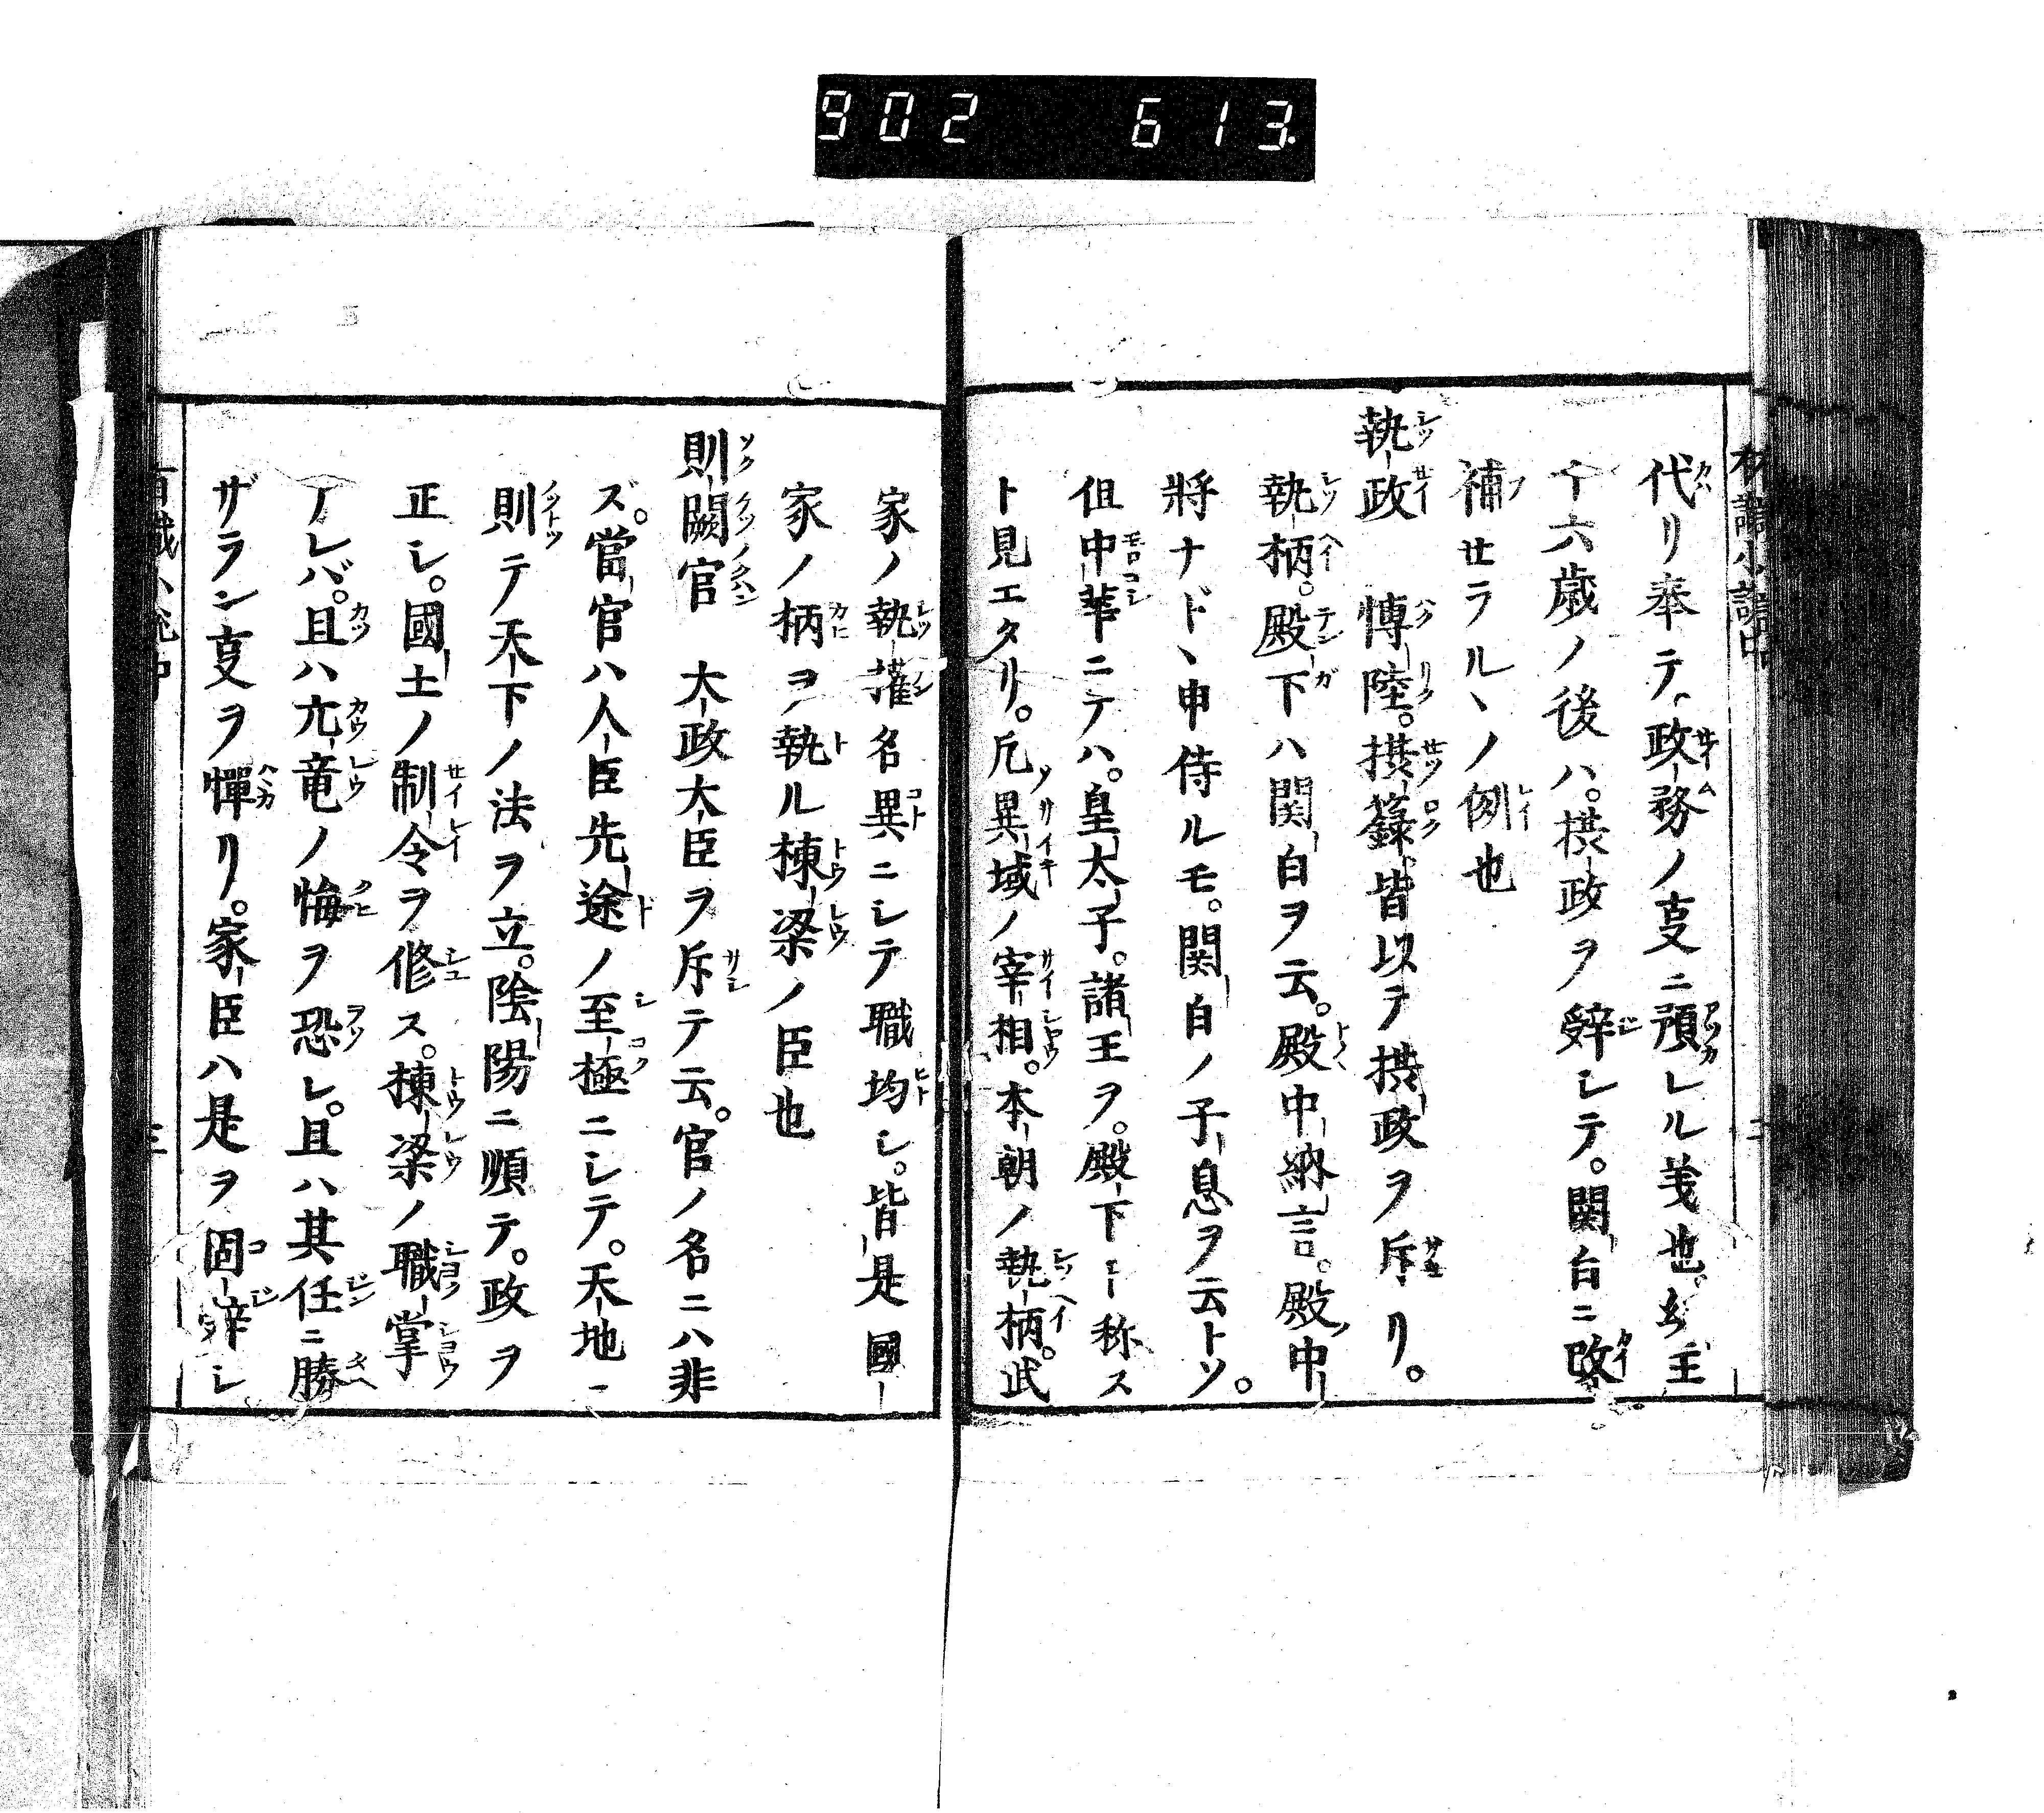 902 613
代リ奉テ政務ノ叓ニ預レル義也幼主
十六歳ノ後ハ。摂政ヲ辞シテ。関白ニ改
補せラルヽノ例也
執政 博陸。摂籙。皆以テ摂政ヲ斥リ。
執柄。殿下ハ関白ヲ云。殿中納言。殿中
將ナドヽ申侍ルモ。関白ノ子息ヲ云トソ。
但中華ニテハ。皇太子。諸王ヲ。殿下ト称ス
ト見エタリ。凡異域ノ宰相。本朝ノ執柄。武
家ノ執権名異ニシテ職均シ。皆是國
家ノ柄ヲ執ル棟梁ノ臣也
則闕官 大政大臣ヲ斥テ云。官ノ名ニハ非
ズ。當官ハ人臣先途ノ至極ニシテ。天地ニ
則テ天下ノ法ヲ立。陰陽ニ順テ。政ヲ
正シ。國土ノ制令ヲ修ス。棟梁ノ職掌
ナレバ。且ハ亢竜ノ悔ヲ恐レ。且ハ其任ニ勝
ザラン叓ヲ憚リ。家臣ハ是ヲ固辞シ